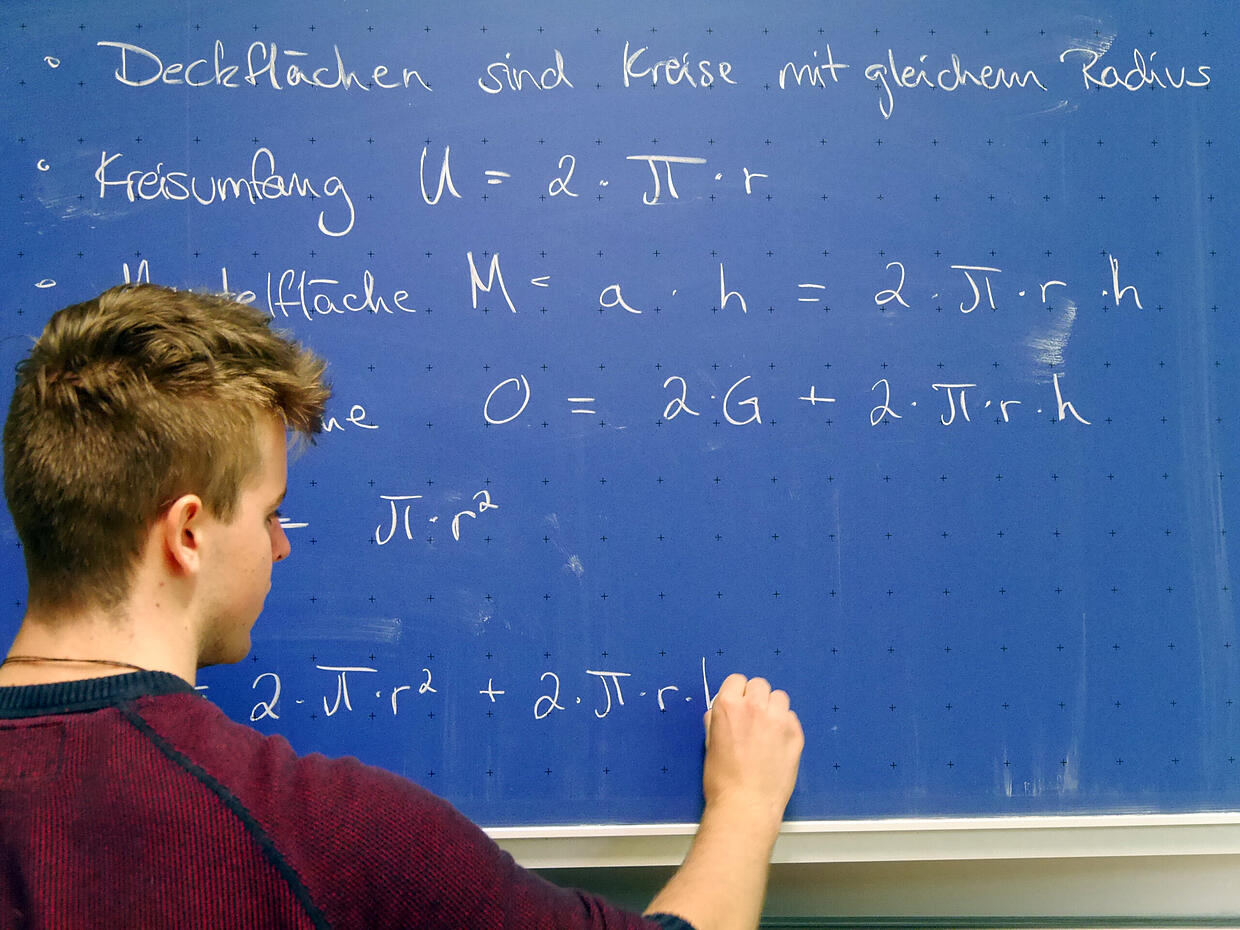 ° Deckflächen sind Kreise mit gleichem Radius
° Kreisumfang U = 2 · π · r
° Mantelfläche M = a · h = 2 · π · r · h
O = 2 · G + 2 · π · r · h
= π · r²
= 2 · π · r² + 2 · π · r · h